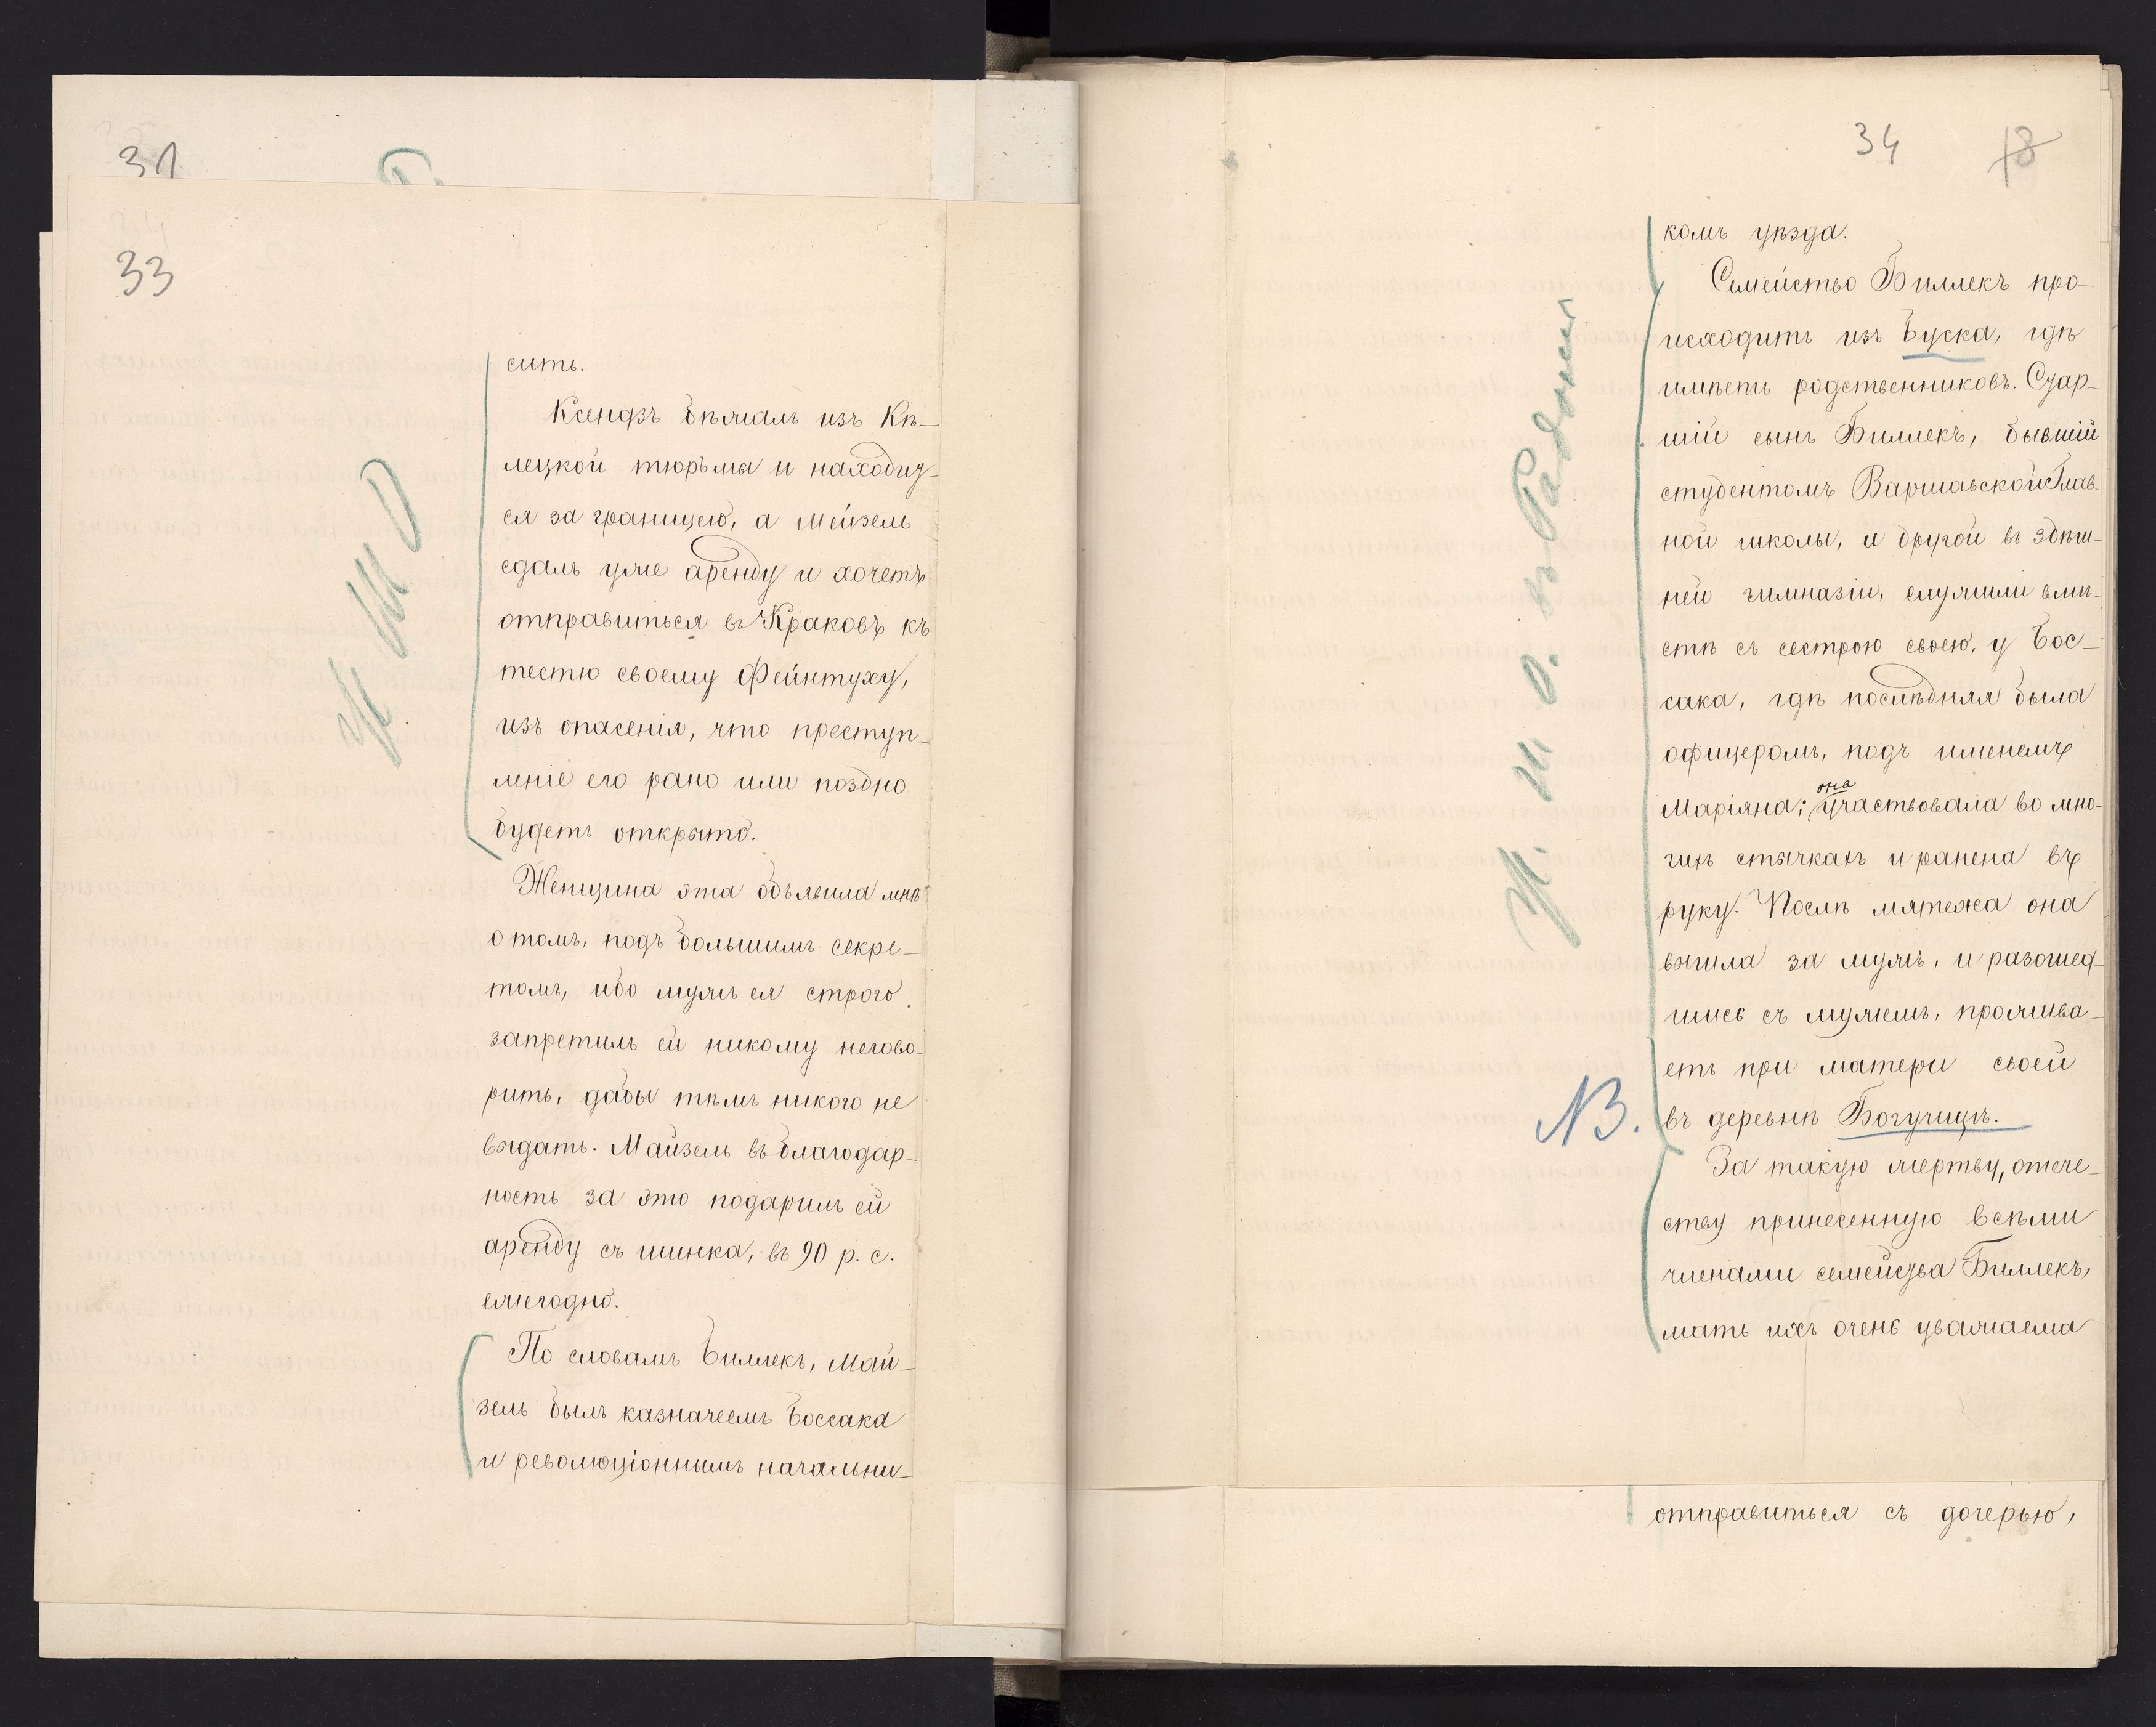 31
33
сить.
Ксендзъ бѣжалъ изъ Кѣ-
лецкой тюрьмы и находит-
ся за границею, а Мейзель
сдалъ уже аренду и хочетъ
отправиться въ Краковъ къ
тестю своему Фейнтуху,
изъ опасенія, что преступ-
леніе его рано или поздно
будетъ открыто.
Женщина эта объявила мнѣ
о томъ, подъ большимъ секре-
томъ, ибо мужъ ея строго
запретилъ ей никому негово-
рить, дабы тѣмъ никого не
выдать. Майзель въ благодар-
ность за это подарилъ ей
аренду съ шинка, въ 90 р. с.
ежегодно.
По словамъ Биллекъ, Май-
зель былъ казначеемъ Боссака
и революціоннымъ начальни-
34 18
комъ уѣзда.
Семейство Биллекъ про-
исходитъ изъ Буска, гдѣ
имѣетъ родственниковъ. Стар-
шій сынъ Биллекъ, бывшій
студентомъ Варшавской Глав-
ной школы, и другой въ здѣш-
ней гимназіи, служили вмѣ-
стѣ съ сестрою своею, у Бос-
сака, гдѣ послѣдняя была
офицеромъ, подъ именемъ
она
Маріяна; участвовала во мно-
гихъ стычкахъ и ранена въ
руку. Послѣ мятежа она
вышла за мужъ, и разошед-
шись съ мужемъ, прожива-
етъ при матери своей
NB.
въ деревнѣ Богучицѣ.
За такую жертву, отече-
ству принесенную всѣми
членами семейства Биллекъ,
мать ихъ очень уважаема
отправиться съ дочерью,